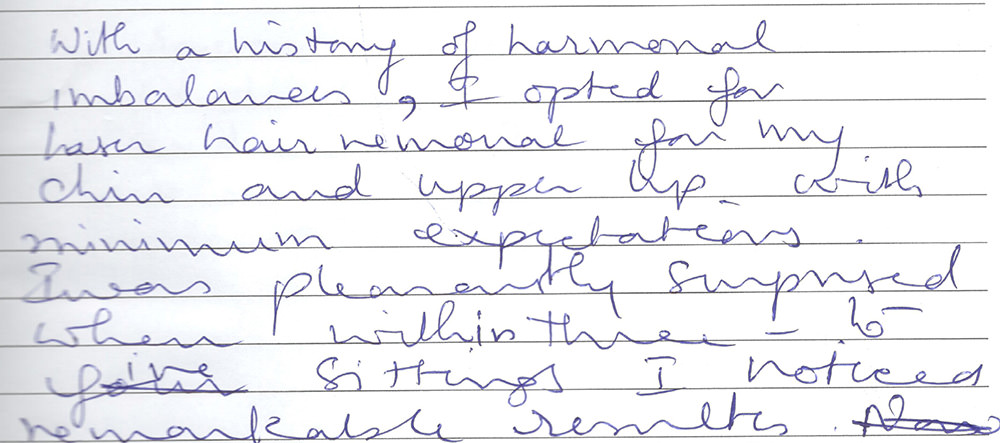 With a history of harmonal
imbalances, I opted for
laser hair removal for my
chin and upper lip with
minimum expectations.
I was pleasantly surprised
when within three - to -
five sittings I noticed
remarkable results.